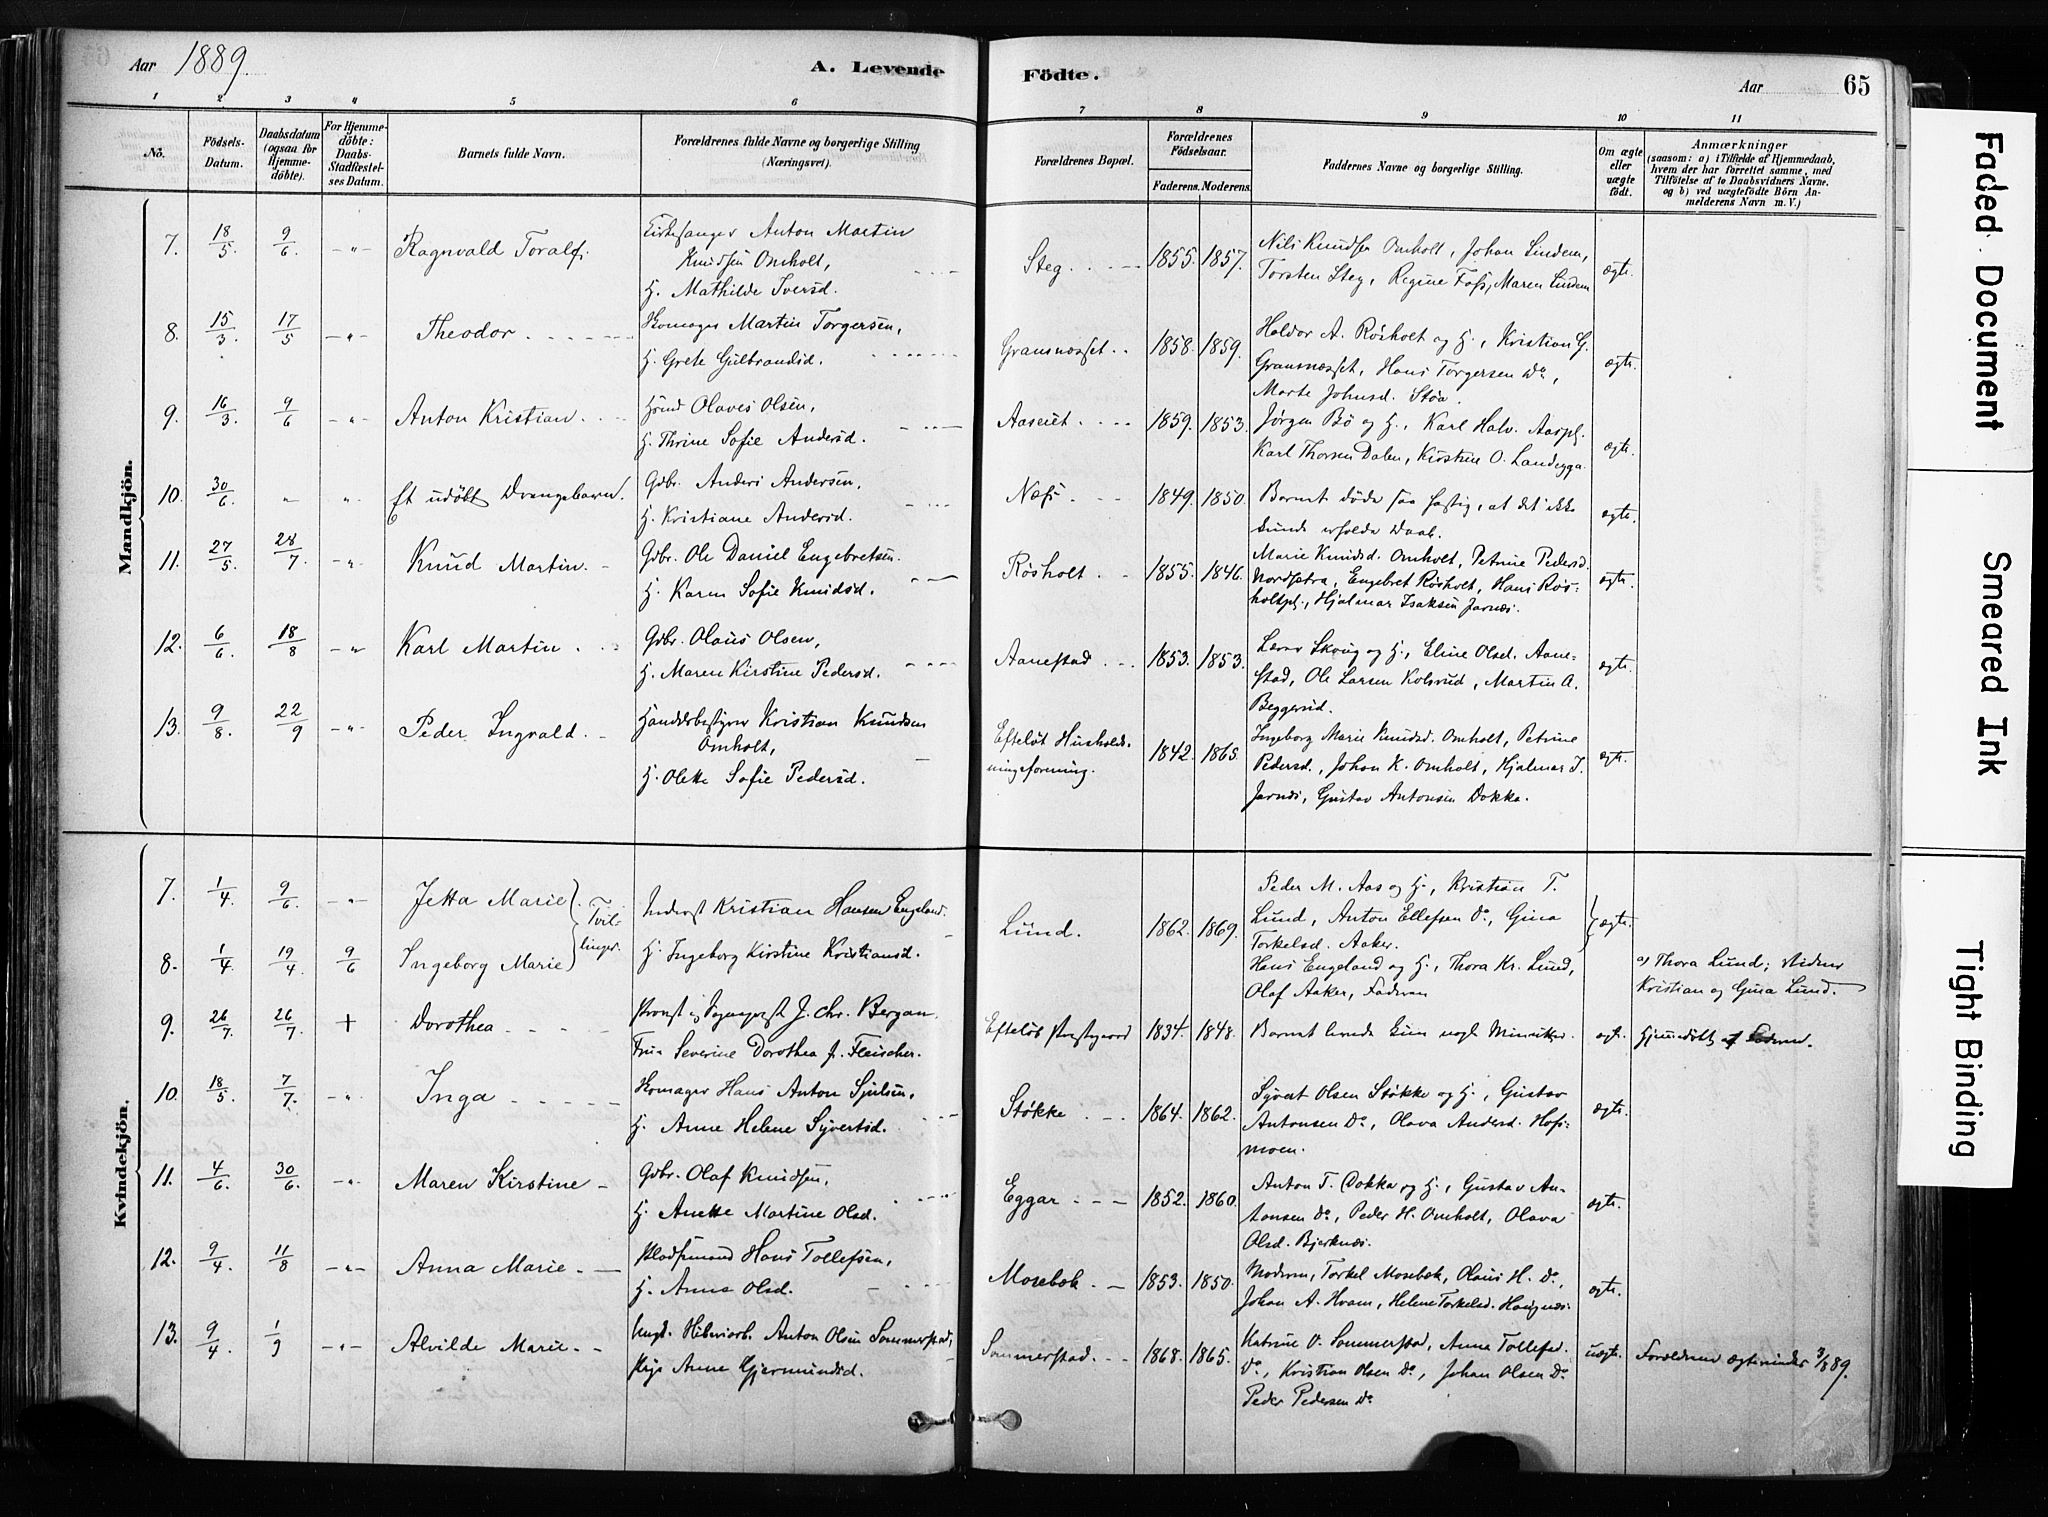 Aar 1889.
A. Levende Födte.
Aar
65
1 2 3 4 5 6 7 8 9 10 11
No.
Födsels-Datum.
Daabsdatum (ogsaa for Hjemme-döbte).
For Hjemme-döbte: Daabs-Stadfæstel-ses Datum.
Barnets fulde Navn.
Forældrenes fulde Navne og borgerlige Stilling (Næringsvei).
Forældrenes Bopæl.
Forældrenes Födselsaar.
Faderens. Moderens.
Faddernes Navne og borgerlige Stilling.
Om ægte eller uægte födt.
Anmærkninger
(saasom: a) i Tilfælde af Hjemmedaab, hvem der har forrettet samme, med Tilföielse af to Daabsvidners Navne, og b) ved uægtefödte Börn An-melderens Navn m. V.)
Mandkjön.
7. 18/5 9/6 -"- Ragnvald Toralf.
Kirkesanger Anton Martin
Knudsen Omholt,
H. Mathilde Iversd.
Steg. 1855. 1857.
Nils Knudsen Omholt, Johan Lindem,
Torsten Steg, Regine Foss, Maren Lindem
ægte.
8. 15/3 17/5 -"- Theodor
Skomager Martin Torgersen,
H. Grete Gulbrandsd.
Gransnæsset. 1858. 1859.
Haldor A. Rösholt og H., Kristian G.
Gransnæsset, Hans Torgersen Do,
Marte Johnsd. Støa.
ægte.
9. 16/3 9/6 -"- Anton Kristian
Olaves Olsen,
H. Thrine Sofie Andersd.
Aaseiet. 1859. 1853.
Jørgen Bö og H., Karl Halv. Aaspl.
Karl Thorsen Dalen, Kirstine O. Landegga
ægte.
10. 30/6 " " Et udöbt Drengebarn.
Gdbr. Anders Andersen,
H. Kristiane Andersd.
Næss. 1849. 1850.
Barnet döde saa hastig, at det ikke
kunde erholde Daab.
ægte.
11. 27/5 28/7 -"- Knud Martin
Gdbr. Ole Daniel Engebretsen.
H. Karen Sofie Knudsd.
Rösholt. 1855. 1846.
Marie Knudsd. Omholt, Petrine Pedersd.
Nordsetra, Engebret Rösholt, Hans Rös-
holtpl., Hjalmar Isaksen Jarnæs.
ægte.
12. 6/6 18/8 -"- Karl Martin
Gdbr. Olaus Olsen,
H. Maren Kirstine Pedersd.
Aanestad 1853. 1853.
Lærer Skoug og H., Eline Olsd. Aane-
stad, Ole Larsen Kolsrud, Martin A.
Beggerud.
ægte.
13. 9/8 22/9 -"- Peder Ingvald
Handelsbestyrer Kristian Knudsen
Omholt,
H. Olette Sofie Pedersd.
Efteløt Hushold-
ningsforening. 1842. 1865.
Ingeborg Marie Knudsd. Omholt, Petrine
Pedersd., Johan K. Omholt, Hjalmar I.
Jarnæs, Gustav Antonsen Dokka.
ægte.
Kvindekjön.
7. 1/4 9/6 -"- Jetta Marie
8. 1/4 19/4 9/6 Ingeborg Marie
Tvil-
linger.
Inderst Kristian Hansen Engeland.
H. Ingeborg Kirstine Kristiansd.
Lund. 1862. 1869.
Peder M. Aas og H., Kristian T.
Lund, Anton Ellefsen Do, Gina
Torkelsd. Aaker.
Hans Engeland og H., Thora Kr. Lund,
Olaf Aaker, Faderen
ægte.
a) Thora Lund; Vidner
Kristian og Gina Lund.
9. 26/7 26/7 + Dorothea
Provst og Sogneprest J. Chr. Bergan.
Frue Severine Dorothea J. Fleischer.
Efteløt Prestegaard 1834. 1848.
Barnet levede kun nogle Minutter.
ægte.
Hjemmedöbt af Faderen.
10. 18/5 7/7 -"- Inga
Skomager Hans Anton Sjulsen,
H. Anne Helene Syvertsd.
Støkke 1864. 1862.
Syvert Olsen Støkke og H., Gustav
Antonsen Do, Olava Andersd. Hofs-
moen.
ægte.
11. 4/6 30/6 -"- Maren Kirstine
Gdbr. Olaf Knudsen,
H. Anette Martine Olsd.
Eggar 1852. 1860.
Anton T. Dokka og H., Gustav An-
tonsen Do, Peder H. Omholt, Olava
Olsd. Bjerknæs.
ægte.
12. 9/4 11/8 -"- Anna Marie
Pladsmand Hans Tollefsen,
H. Anna Olsd.
Mosebek 1853. 1850.
Moderen, Torkel Mosebek, Olaus H. Do,
Johan A. Hvam, Helene Torkelsd. Haugnæs.
ægte.
13. 9/4 1/9 -"- Alvilde Marie
Ungk. Anton Olsen Sommerstad,
Pige Anne Gjermundsd.
Sommerstad. 1868. 1865.
Katrine O. Sommerstad, Anne Tollefsd.
Do, Kristian Olsen Do, Johan Olsen Do
Peder Pedersen Do
uægte.
Forældrene ægteviedes 3/8 89.
Faded Document
Smeared Ink
Tight Binding